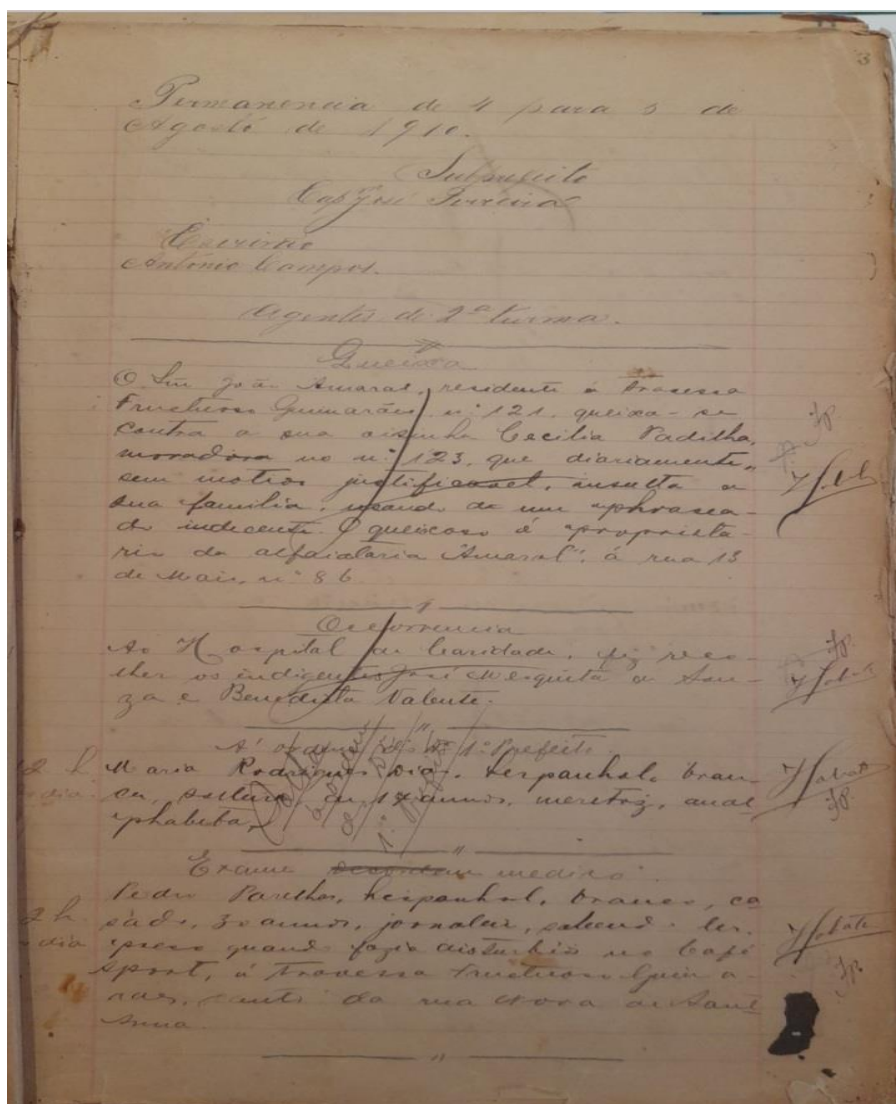 3
Permanencia de 4 para 5 de
Agosto de 1910.
Subprefeito
Cap.m José Ferreira
Escrivão
Antonio Campos.
Agentes da 2ª turma.
Queixa
O Snr João Amaral, residente á travessa
Fructuoso Guimarães, n.º 121, queixa-se
contra a sua visinha Cecilia Padilha,
moradora no n.º 123, que diariamente,
sem motivo justificavel, insulta a
sua familia, usando de um phrasea-
do indecente. O queixoso é proprieta-
rio da alfaiataria "Amaral", á rua 13
de Maio, n.º 86.
Occorrencia
Ao Hospital de Caridade, fiz reco-
lher os indigentes José Mesquita de Sou-
za e Benedicta Valente.
A' ordem do Sr. 1.º Prefeito.
12 h
dia
Maria Rodrigues Dias, hespanhola, bran-
ca, solteira, de 17 annos, meretriz, anal
phabeta.
a ordem
do Sr.
1.º Prefeito
Exame medico
12 h
dia
Pedro Paredes, hespanhol, branco, ca
sado, 30 annos, jornaleiro, sabendo ler,
preso quando fazia disturbio no Café
Sport, á travessa Fructuoso Guima-
rães, canto da rua Nova de Sant'
Anna.